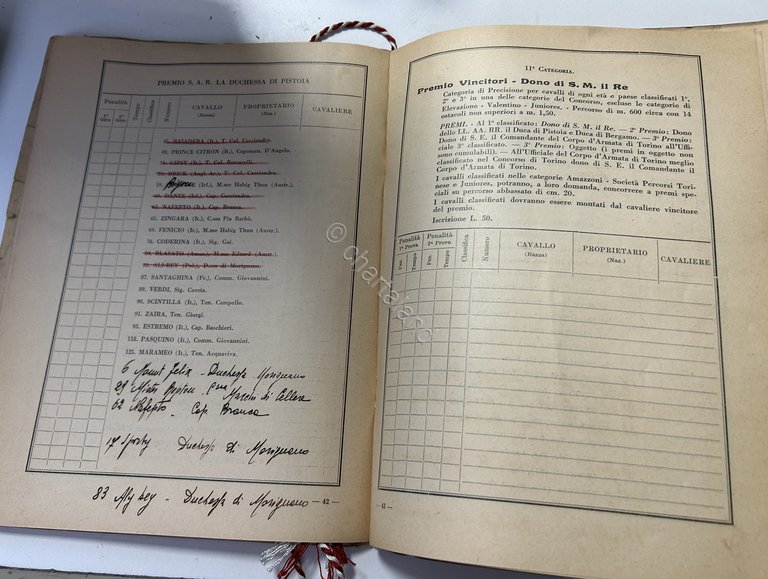 PREMIO S. A. R. LA DUCHESSA DI PISTOIA
Penalità
1º Giro
2º Giro
Tempo
Classifica
Numero
CAVALLO
(Razza)
PROPRIETARIO
(Naz.)
CAVALIERE
15. BAIADERA (It.), T. Col. Cacciandra.
43. PRINCE CITRON (It.), Capomm. D'Angelo.
GIPSY (It.), T. Col. Borsarelli.
BRICK (Angl.-Ar.), T. Col. Cacciandra.
(Irl.), M.me Habig Thun (Austr.).
DANTE (It.), Cap. Cacciandra.
62. NAFEPTO (It.), Cap. Branca.
65. ZINGARA (It.), C.ssa Pia Barbò.
69. FENICIO (It.), M.me Habig Thun (Austr.).
76. CODERINA (It.), Sig. Gai.
BLASATO (Austr.), M.me Edzard (Austr.).
83. ALI-BEY (Pol.), D.ssa di Morignano.
87. SANTAGHINA (Fr.), Comm. Giovannini.
89. VERDI, Sig. Coccia.
90. SCINTILLA (It.), Ten. Campello.
91. ZAIRA, Ten. Giorgi.
93. ESTREMO (It.), Cap. Baschieri.
118. PASQUINO (It.), Comm. Giovannini.
125. MARAMEO (It.), Ten. Acquaviva.
6 Mount Felix - Duchessa Morignano
29 Miss Boston - C.ssa Marcin di Cellere
62 Nafepto - Cap. Branca
17 Sporty Duchessa di Morignano
83 Aly bey - Duchessa di Morignano
— 42 —
11ª CATEGORIA.
Premio Vincitori - Dono di S. M. il Re
Categoria di Precisione per cavalli di ogni età e paese classificati 1º,
2º e 3º in una delle categorie del Concorso, escluse le categorie di
Elevazione - Valentino - Juniores. - Percorso di m. 600 circa con 14
ostacoli non superiori a m. 1,50.
PREMI. - Al 1º classificato: Dono di S. M. il Re. — 2º Premio: Dono
delle LL. AA. RR. il Duca di Pistoia e Duca di Bergamo. — 3º Premio:
Dono di S. E. il Comandante del Corpo d'Armata di Torino all'Uffi-
ciale 3º classificato. — 3º Premio: Oggetto (i premi in oggetto non
sono cumulabili). — All'Ufficiale del Corpo d'Armata di Torino meglio
classificato nel Concorso di Torino dono di S. E. il Comandante il
Corpo d'Armata di Torino.
I cavalli classificati nelle categorie Amazzoni - Società Percorsi Tori-
nese e Juniores, potranno, a loro domanda, concorrere a premi spe-
ciali su percorso abbassato di cm. 20.
I cavalli classificati dovranno essere montati dal cavaliere vincitore
del premio.
Iscrizione L. 50.
Penalità
1ª Prova
Penalità
2ª Prova
Pun.
Tempo
Pun.
Tempo
Classifica
Numero
CAVALLO
(Razza)
PROPRIETARIO
(Naz.)
CAVALIERE
— 43 —
© charta'arc